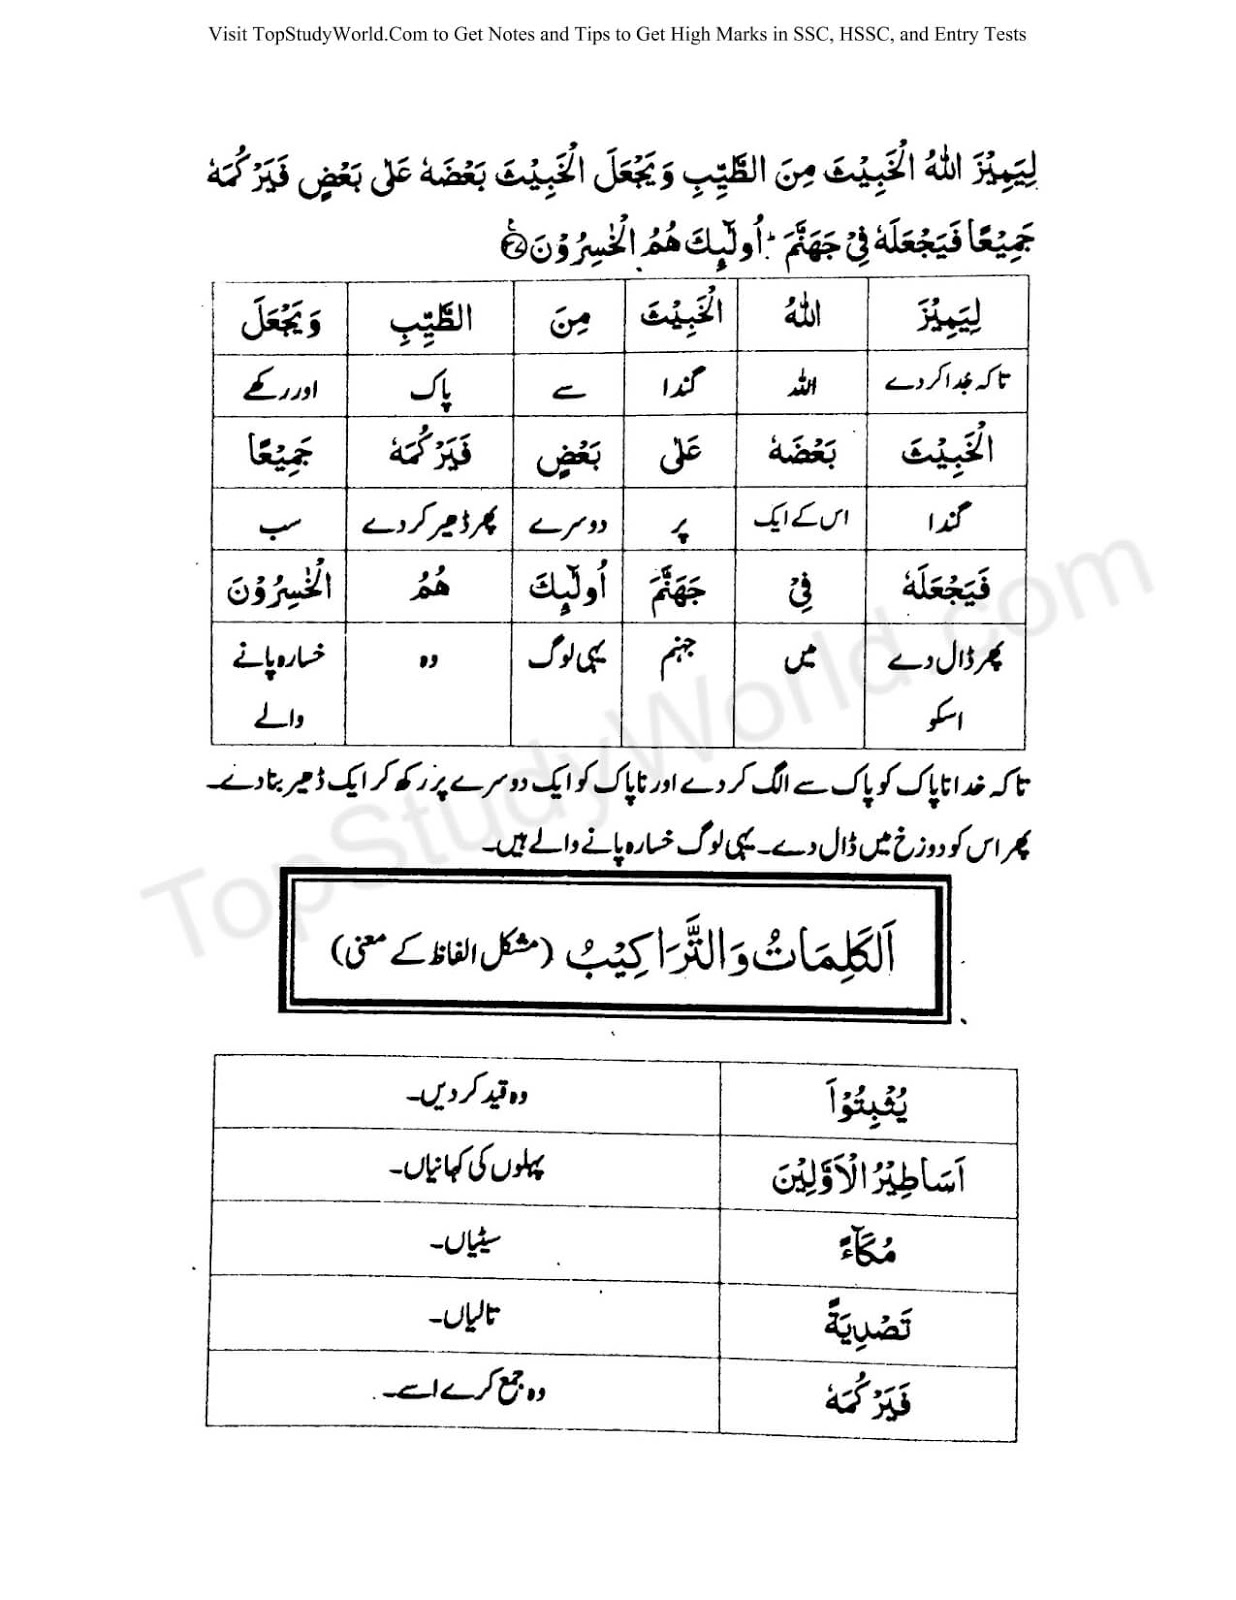 Visit TopStudyWorld.Com to Get Notes and Tips to Get High Marks in SSC, HSSC, and Entry Tests
لِيَمِيْزَ اللّٰهُ الْخَبِيْثَ مِنَ الطَّيِّبِ وَ يَجْعَلَ الْخَبِيْثَ بَعْضَهٗ عَلٰى بَعْضٍ فَيَرْكُمَهٗ
جَمِيْعًا فَيَجْعَلَهٗ فِيْ جَهَنَّمَ ؕ اُولٰٓئِكَ هُمُ الْخٰسِرُوْنَ ﴿۳۷﴾
لِيَمِيْزَ اللّٰهُ الْخَبِيْثَ مِنَ الطَّيِّبِ وَ يَجْعَلَ
تاکہ جُدا کر دے اللہ گندا سے پاک اور رکھے
الْخَبِيْثَ بَعْضَهٗ عَلٰى بَعْضٍ فَيَرْكُمَهٗ جَمِيْعًا
گندا اس کے ایک پر دوسرے پھر ڈھیر کر دے سب
فَيَجْعَلَهٗ فِيْ جَهَنَّمَ اُولٰٓئِكَ هُمُ الْخٰسِرُوْنَ
پھر ڈال دے میں جہنم یہی لوگ وہ خسارہ پانے
اسکو والے
تاکہ خدا ناپاک کو پاک سے الگ کر دے اور ناپاک کو ایک دوسرے پر رکھ کر ایک ڈھیر بنا دے۔
پھر اس کو دوزخ میں ڈال دے۔ یہی لوگ خسارہ پانے والے ہیں۔
اَلْكَلِمَاتُ وَالتَّرَاكِيْبُ (مشکل الفاظ کے معنی)
يُثْبِتُوْا وہ قید کر دیں۔
اَسَاطِيْرُ الْاَوَّلِيْنَ پہلوں کی کہانیاں۔
مُكَآءً سیٹیاں۔
تَصْدِيَةً تالیاں۔
فَيَرْكُمَهٗ وہ جمع کرے اسے۔
TopStudyWorld.com